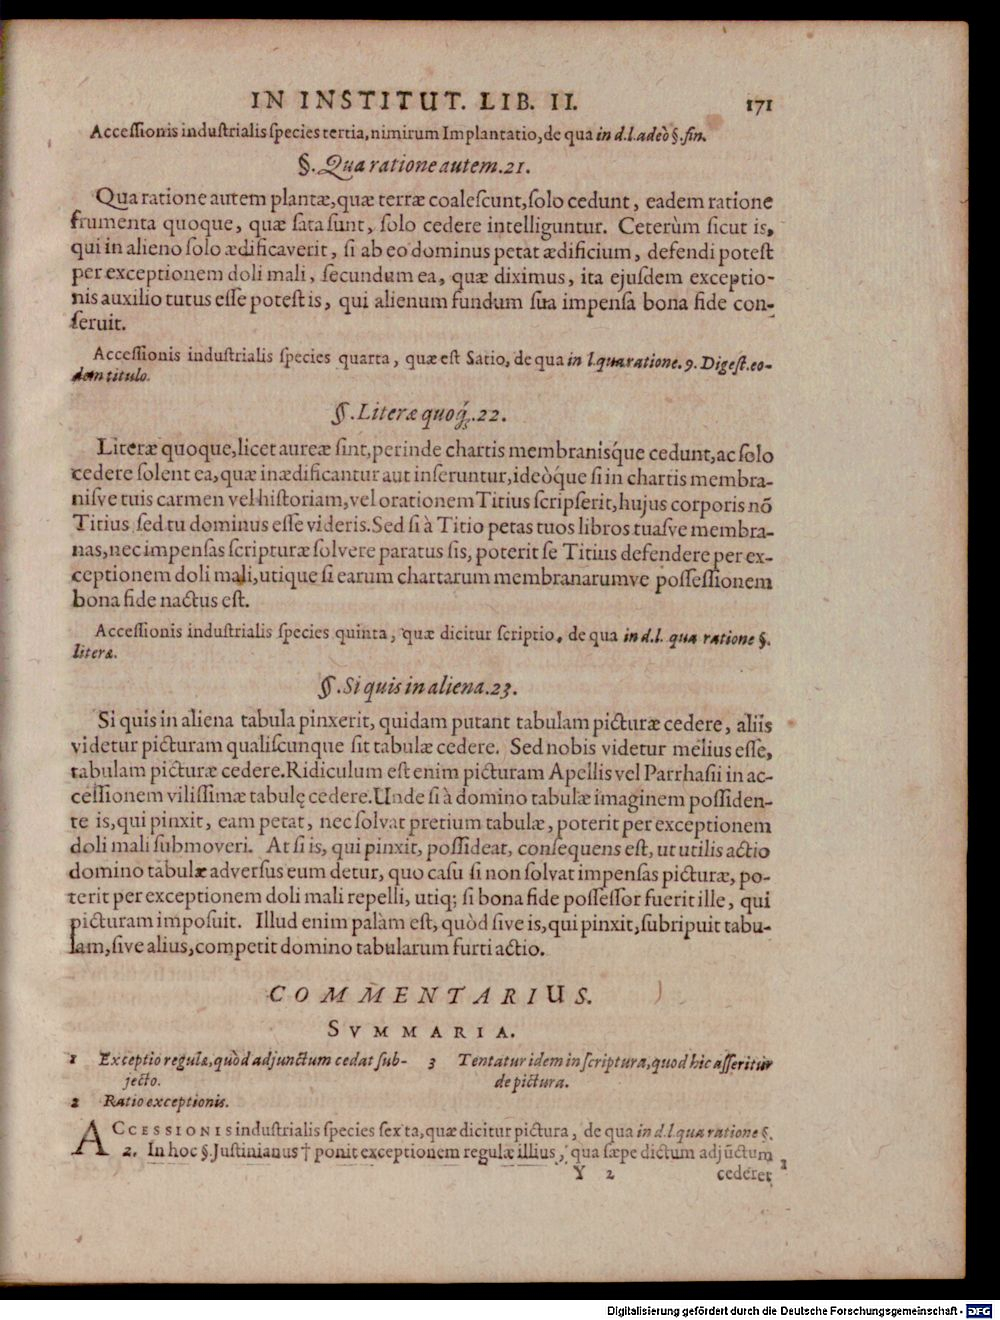 IN INSTITUT. LIB. II. 171
Accessionis industrialis species tertia, nimirum Implantatio, de qua in d.l. adeò §. fin.
§. Qua ratione autem. 21.
Qua ratione autem plantæ, quæ terræ coalescunt, solo cedunt, eadem ratione
frumenta quoque, quæ sata sunt, solo cedere intelliguntur. Ceterùm sicut is,
qui in alieno solo ædificaverit, si ab eo dominus petat ædificium, defendi potest
per exceptionem doli mali, secundum ea, quæ diximus, ita ejusdem exceptio-
nis auxilio tutus esse potest is, qui alienum fundum sua impensa bona fide con-
seruit.
Accessionis industrialis species quarta, quæ est Satio, de qua in l. qua ratione. 9. Digest. eo-
dem titulo.
§. Literæ quoq́;. 22.
Literæ quoque, licet aureæ sint, perinde chartis membranisq́ue cedunt, ac solo
cedere solent ea, quæ inædificantur aut inseruntur, ideòq́ue si in chartis membra-
nisve tuis carmen vel historiam, vel orationem Titius scripserit, hujus corporis nõ
Titius sed tu dominus esse videris. Sed si à Titio petas tuos libros tuasve membra-
nas, nec impensas scripturæ solvere paratus sis, poterit se Titius defendere per ex-
ceptionem doli mali, utique si earum chartarum membranarumve possessionem
bona fide nactus est.
Accessionis industrialis species quinta, quæ dicitur scriptio, de qua in d.l. qua ratione §.
literæ.
§. Si quis in aliena. 23.
Si quis in aliena tabula pinxerit, quidam putant tabulam picturæ cedere, aliis
videtur picturam qualiscunque sit tabulæ cedere. Sed nobis videtur melius esse,
tabulam picturæ cedere. Ridiculum est enim picturam Apellis vel Parrhasii in ac-
cessionem vilissimæ tabulę cedere. Unde si à domino tabulæ imaginem possiden-
te is, qui pinxit, eam petat, nec solvat pretium tabulæ, poterit per exceptionem
doli mali submoveri. At si is, qui pinxit, possideat, consequens est, ut utilis actio
domino tabulæ adversus eum detur, quo casu si non solvat impensas picturæ, po-
terit per exceptionem doli mali repelli, utiq; si bona fide possessor fuerit ille, qui
picturam imposuit. Illud enim palàm est, quòd sive is, qui pinxit, subripuit tabu-
lam, sive alius, competit domino tabularum furti actio.
COMMENTARIUS.
SVMMARIA.
1 Exceptio regulæ, quòd adjunctum cedat sub-
jecto.
2 Ratio exceptionis.
3 Tentatur idem in scriptura, quod hic asseritur
de pictura.
ACCESSIONIS industrialis species sexta, quæ dicitur pictura, de qua in d.l. qua ratione §.
2. In hoc §. Justinianus † ponit exceptionem regulæ illius, qua sæpe dictum adjũctum 1
Y 2 cederet
Digitalisierung gefördert durch die Deutsche Forschungsgemeinschaft - DFG